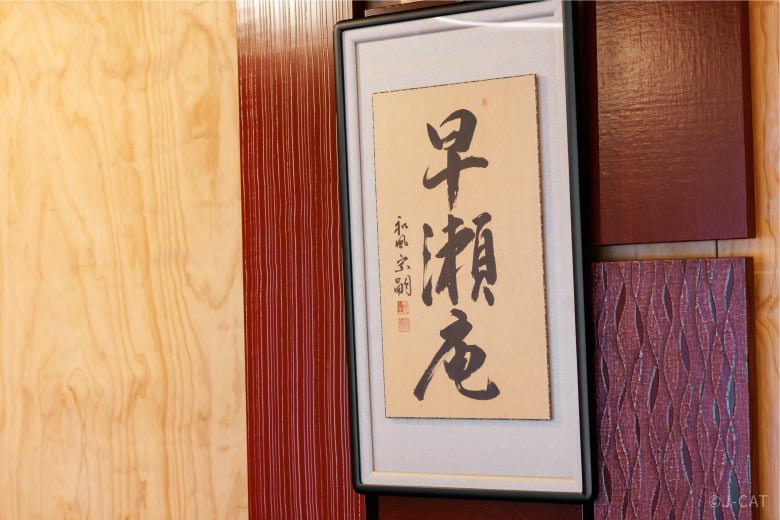 早瀬庵
和風宗嗣
©J-CAT